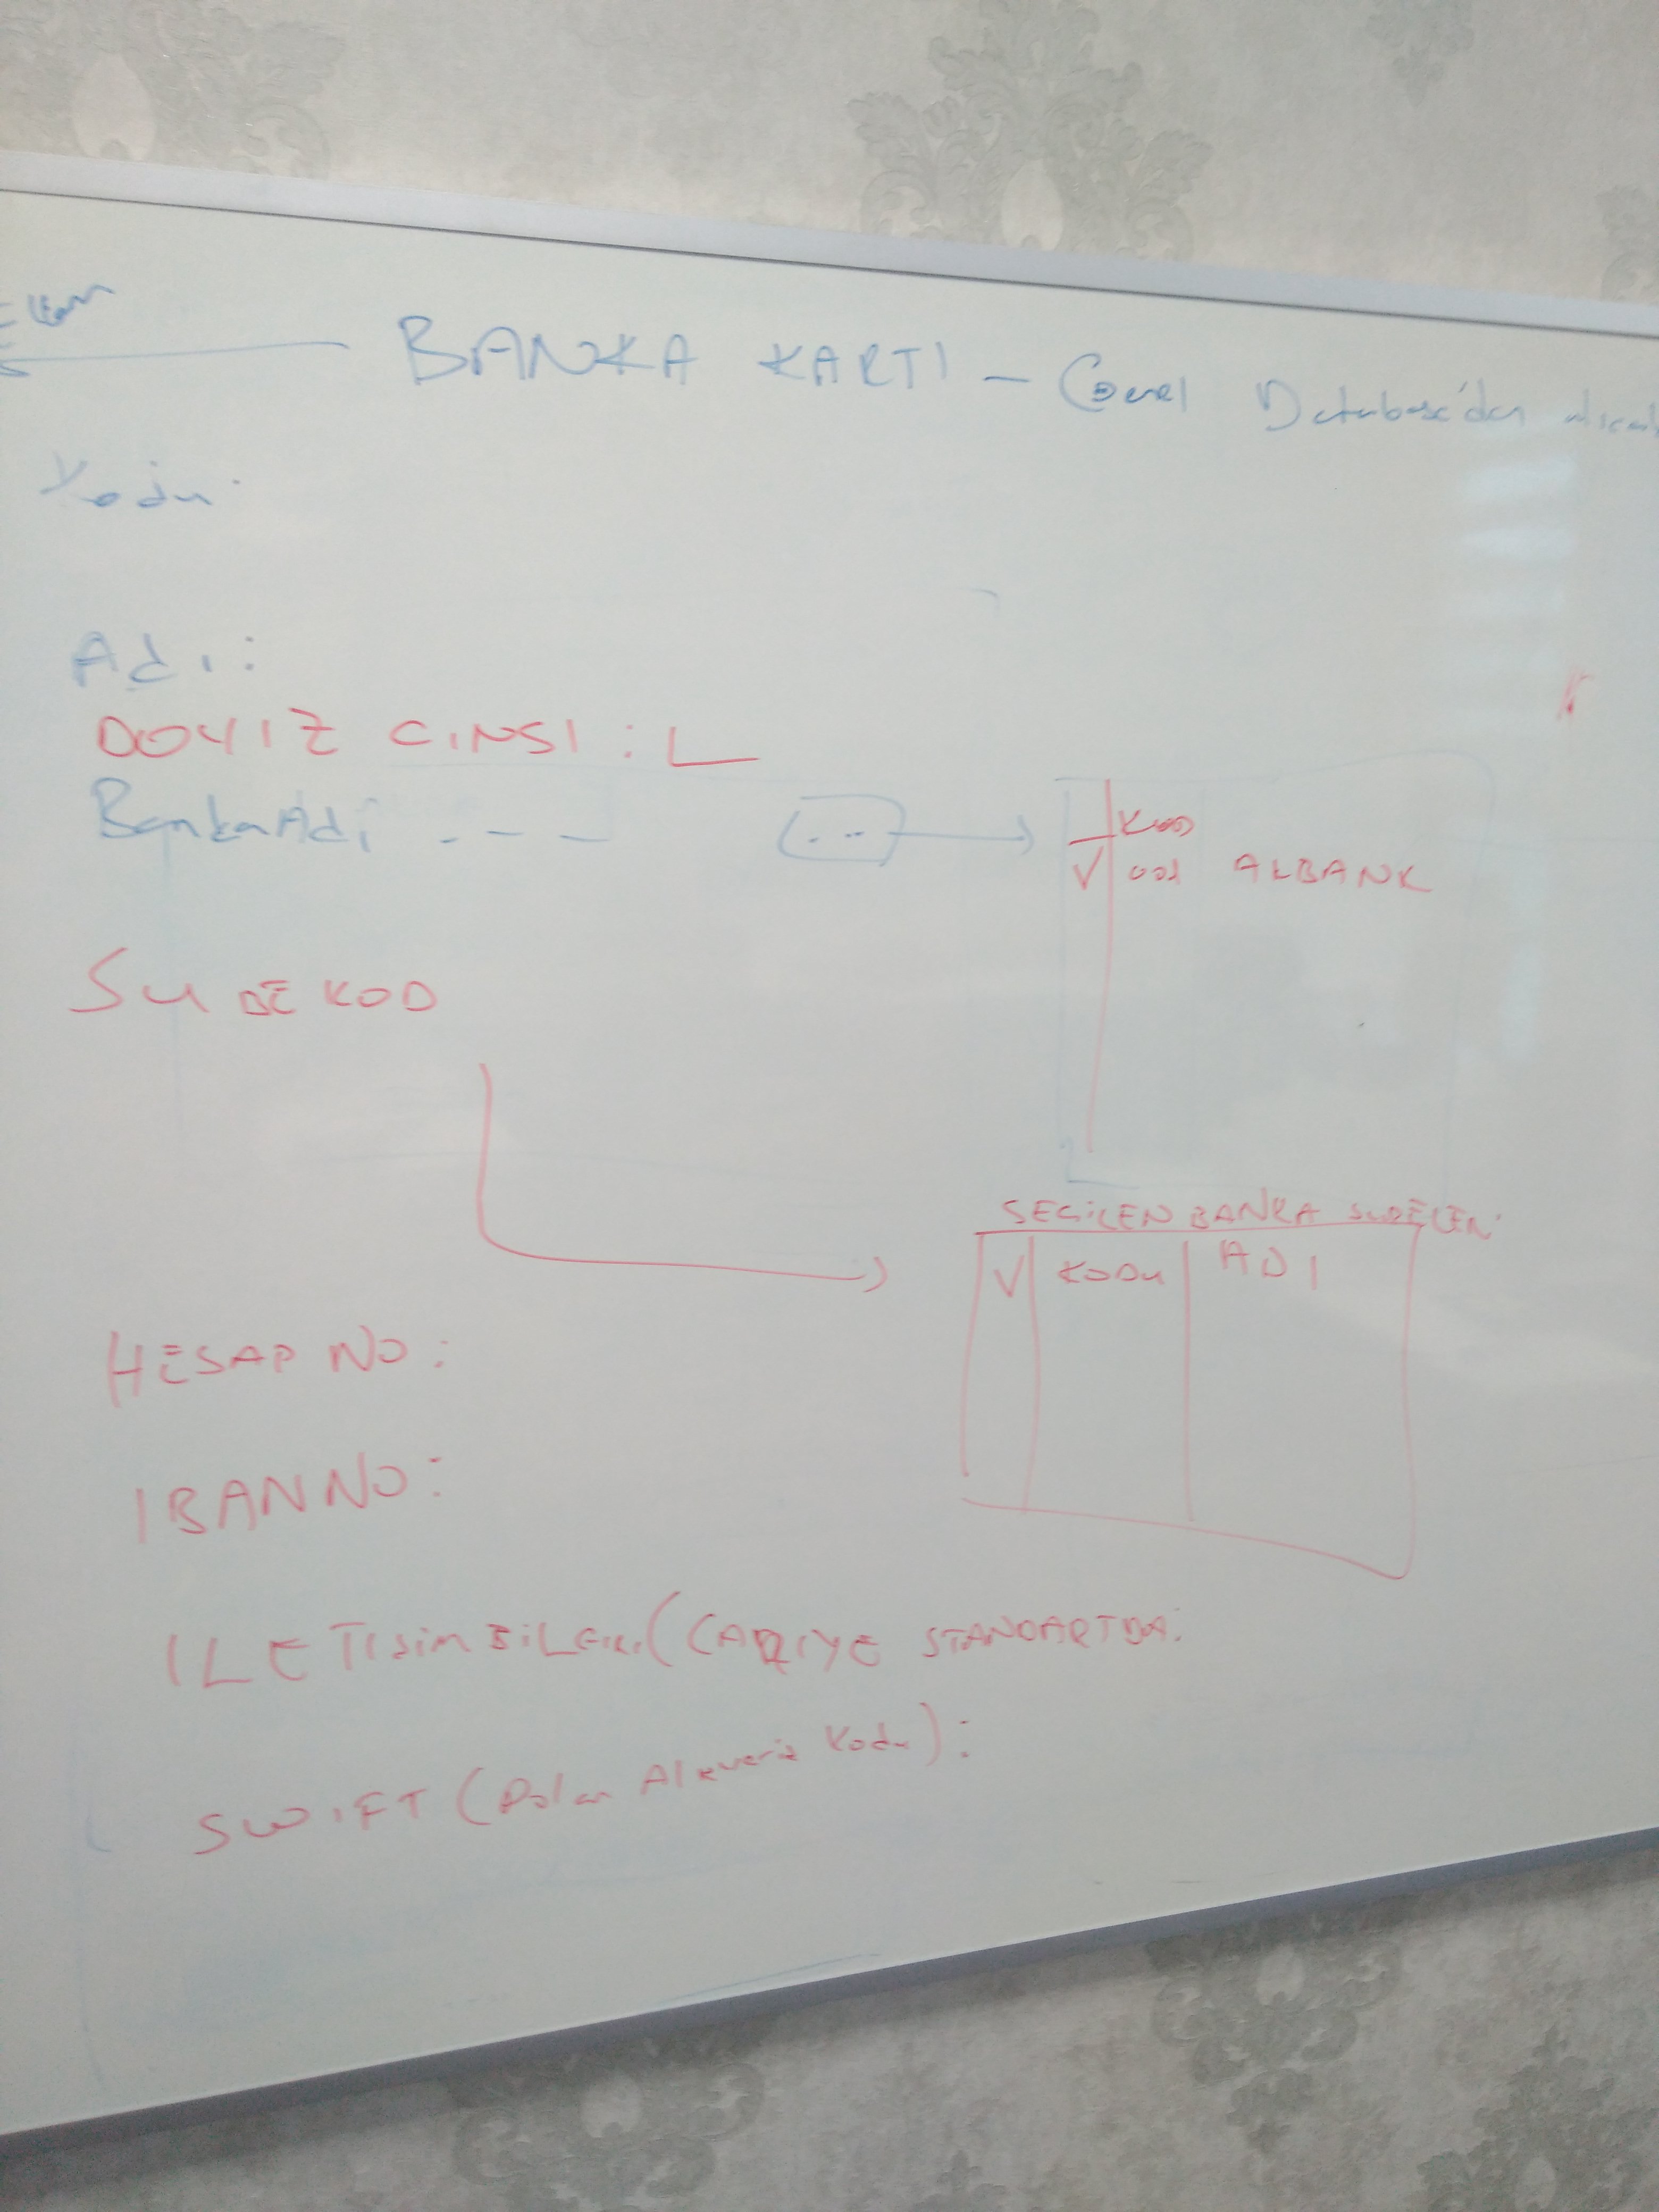 BANKA KARTI - Genel Database'den
Kodu:
Adı:
DOVIZ CINSI :
Banka Adi - - -
KOD
V 001 AKBANK
SUBE KOD
SEÇİLEN BANKA SUBELERİ
V KODU ADI
HESAP NO:
IBAN NO:
ILETISIM BILGILERI (CARIYE STANDARTDA.
SWIFT (Dolar Alisveris Kodu):